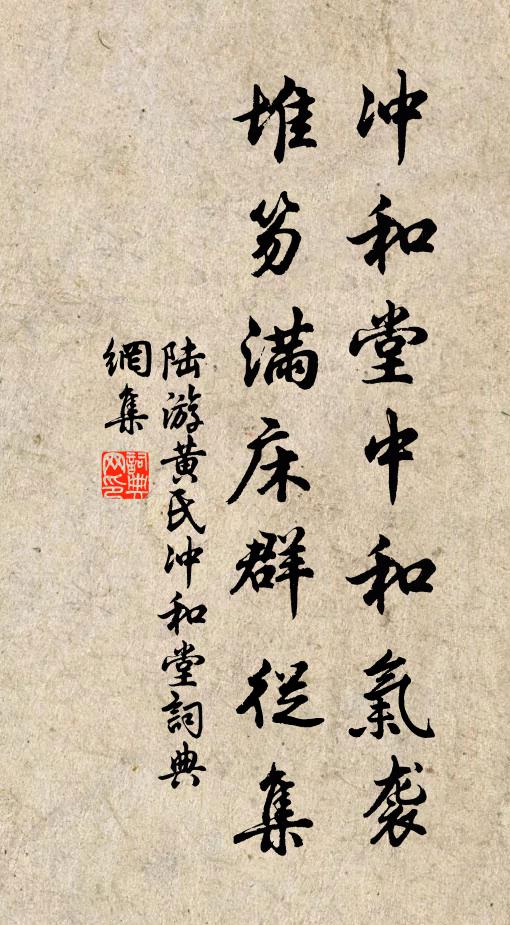 冲和堂中和氣袭
堆笏满床群從集
陆游黄氏冲和堂詞典
網集
詞典
网印